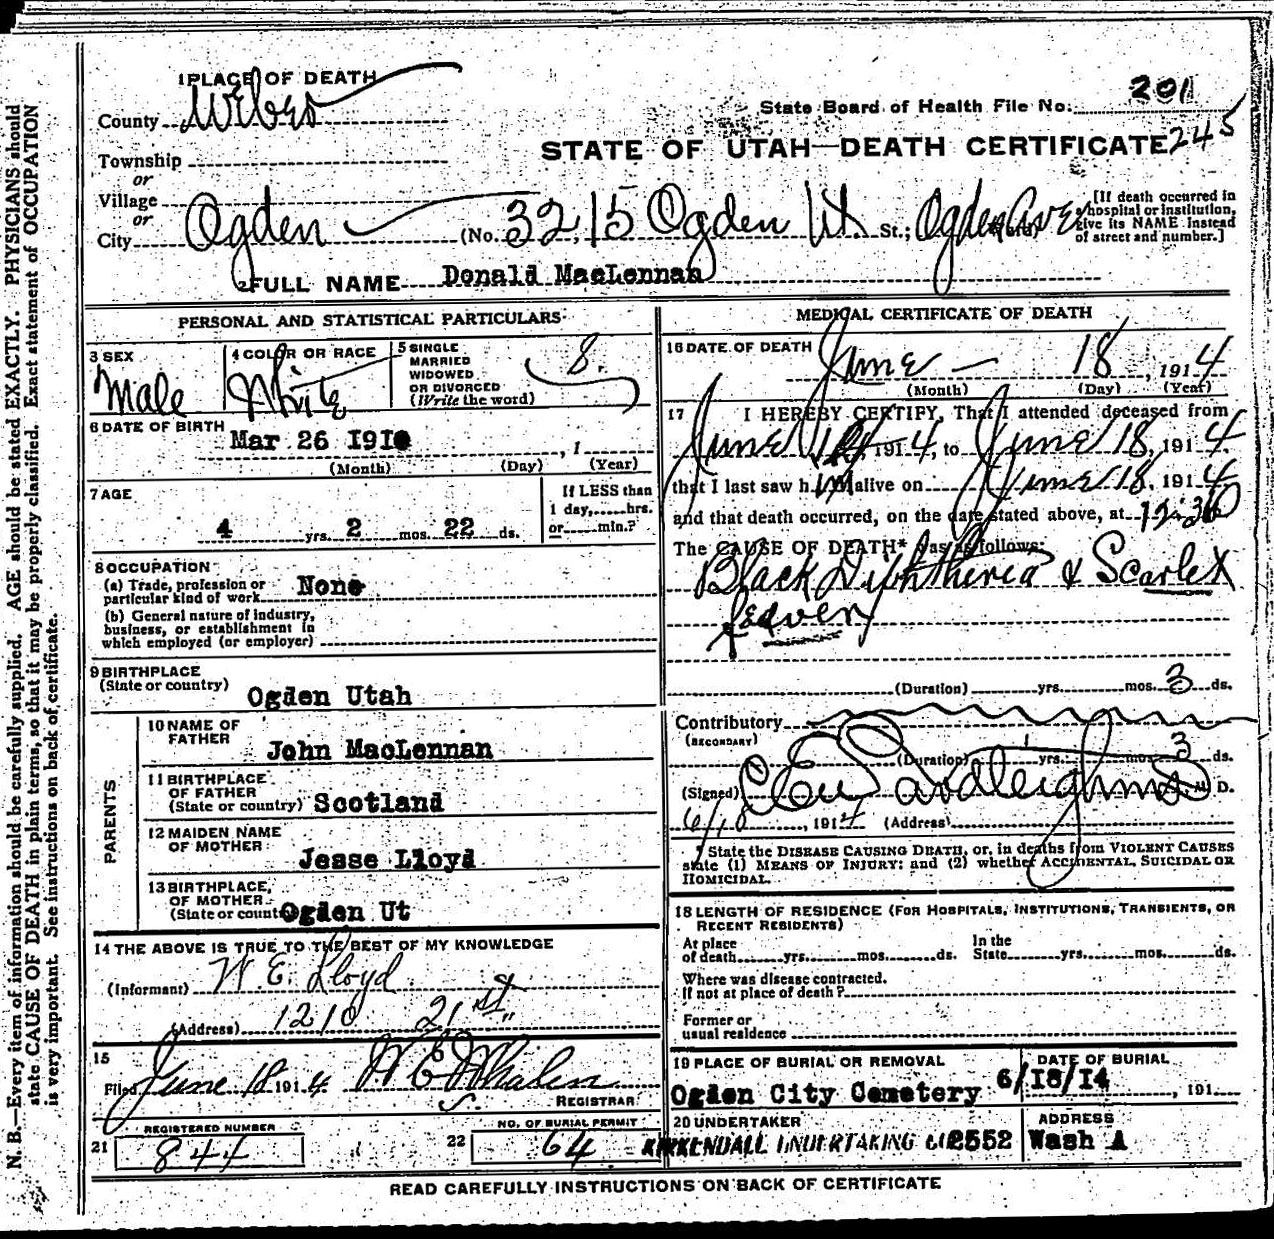 1 PLACE OF DEATH
County Weber
State Board of Health File No. 201
Township
or
STATE OF UTAH—DEATH CERTIFICATE 245
Village
or
City Ogden (No. 3215 Ogden Ut. St.; Ogden Ave
[If death occurred in
a hospital or institution,
give its NAME instead
of street and number.]
2 FULL NAME Donald MacLennan
PERSONAL AND STATISTICAL PARTICULARS
3 SEX
Male
4 COLOR OR RACE
White
5 SINGLE
MARRIED
WIDOWED
OR DIVORCED
(Write the word)
S.
6 DATE OF BIRTH
Mar 26 1910, 1
(Month) (Day) (Year)
7 AGE
4 yrs. 2 mos. 22 ds.
If LESS than
1 day,.....hrs.
or.....min.?
8 OCCUPATION
(a) Trade, profession or
particular kind of work None
(b) General nature of industry,
business, or establishment in
which employed (or employer)
9 BIRTHPLACE
(State or country)
Ogden Utah
PARENTS
10 NAME OF
FATHER
John MacLennan
11 BIRTHPLACE
OF FATHER
(State or country) Scotland
12 MAIDEN NAME
OF MOTHER
Jesse Lloyd
13 BIRTHPLACE,
OF MOTHER
(State or count Ogden Ut
14 THE ABOVE IS TRUE TO THE BEST OF MY KNOWLEDGE
(Informant) W. E. Lloyd
(Address) 1210 21 st
15
Filed June 18 1914 W E Whalen
REGISTRAR
REGISTERED NUMBER
21 844
NO. OF BURIAL PERMIT
22 64
MEDICAL CERTIFICATE OF DEATH
16 DATE OF DEATH
June 18, 1914
(Month) (Day) (Year)
17 I HEREBY CERTIFY, That I attended deceased from
June 1914, to June 18, 1914
that I last saw him alive on June 18, 1914
and that death occurred, on the date stated above, at 12:30
The CAUSE OF DEATH* was as follows:
Black Diphtheria & Scarlet
feaver
(Duration) yrs. mos. 3 ds.
Contributory
(SECONDARY)
(Duration) yrs. mos. 3 ds.
(Signed) M. D.
6/18, 1914 (Address)
* State the DISEASE CAUSING DEATH, or, in deaths from VIOLENT CAUSES
state (1) MEANS OF INJURY: and (2) whether ACCIDENTAL, SUICIDAL OR
HOMICIDAL.
18 LENGTH OF RESIDENCE (FOR HOSPITALS, INSTITUTIONS, TRANSIENTS, OR
RECENT RESIDENTS)
At place
of death yrs. mos. ds.
In the
State yrs. mos. ds.
Where was disease contracted.
If not at place of death?
Former or
usual residence
19 PLACE OF BURIAL OR REMOVAL
Ogden City Cemetery
DATE OF BURIAL
6/18/14, 191
20 UNDERTAKER
KIRKENDALL UNDERTAKING CO
ADDRESS
2552 Wash A
READ CAREFULLY INSTRUCTIONS ON BACK OF CERTIFICATE
N. B.—Every item of information should be carefully supplied. AGE should be stated EXACTLY. PHYSICIANS should
state CAUSE OF DEATH in plain terms, so that it may be properly classified. Exact statement of OCCUPATION
is very important. See instructions on back of certificate.